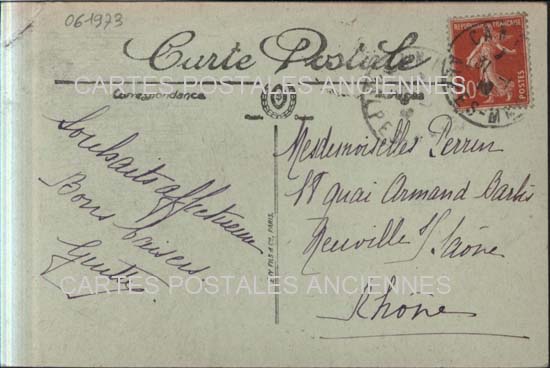 061973
Carte Postale
CARTES POSTALES ANCIENNES
Correspondance
Souhaits affectueux
Bons baisers
Mesdemoiselles Perrin
18 quai Armand Barbès
Neuville s/ Saône
Rhône
CARTES POSTALES ANCIENNES
RÉPUBLIQUE FRANÇAISE
POSTES